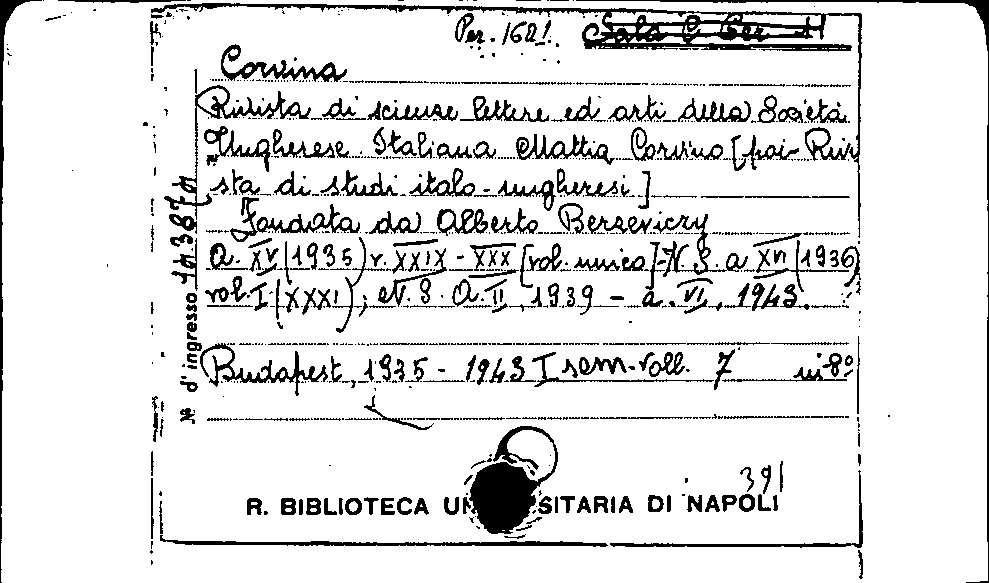 Per. 1621.
Sala C Per 11
Corvina
Rivista di scienze lettere ed arti della Società
Ungherese Italiana Mattia Corvino [poi Rivi
sta di studi italo-ungheresi]
Fondata da Alberto Berseviczy
A. XV (1935) v. XXIX - XXX [vol. unico] - N. S. a XVI (1936)
vol. I (XXXI); N. S. A. II, 1939 - a. VI, 1943.
Budapest, 1935 - 1943 I sem. voll. 7 in-8º
№ d'ingresso
391
R. BIBLIOTECA UN SITARIA DI NAPOLI